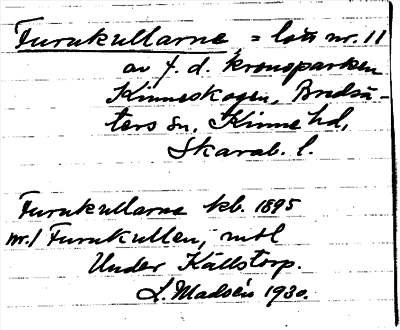 Furukullarna = lott nr. 11
av f. d. kronoparken
Kinneskogen, Bredsä-
ters sn, Kinne hd,
Skarab. l.
Furukullarna kb. 1895
nr./ Furukullen, mtl
Under Källstorp.
L. Madsén 1930.